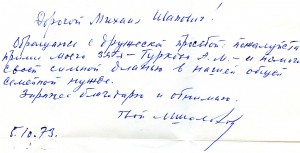 Дорогой Михаил Шапович!
Обращаюсь с дружеской просьбой: пожалуйста
прими моего зятя – Туркова Э. М. – и помоги
своей сильной властью в нашей общей
семейной нужде.
Заранее благодарю и обнимаю.
Твой М. Шолохов
5.10.73.